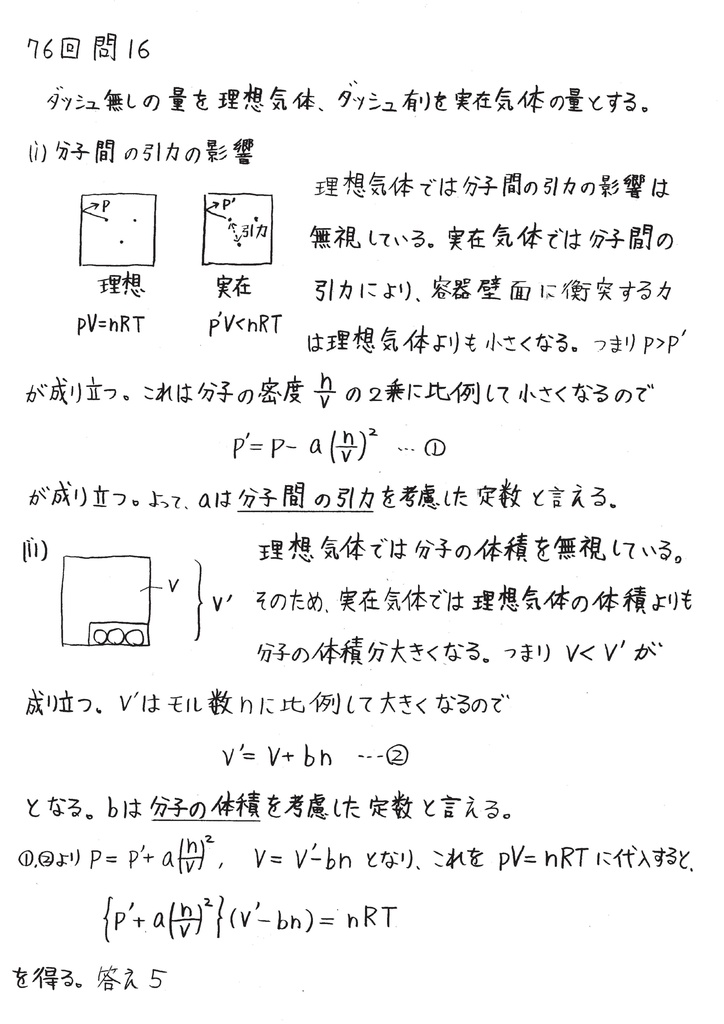 76回 問16
ダッシュ無しの量を理想気体、ダッシュ有りを実在気体の量とする。
(i) 分子間の引力の影響
P
P'
引力
理想
実在
pV=nRT
p'V<nRT
理想気体では分子間の引力の影響は
無視している。実在気体では分子間の
引力により、容器壁面に衝突する力
は理想気体よりも小さくなる。つまりP>P'
が成り立つ。これは分子の密度 n/V の2乗に比例して小さくなるので
P'= P- a(n/V)² … ①
が成り立つ。よって、aは分子間の引力を考慮した定数と言える。
(ii)
V
V'
理想気体では分子の体積を無視している。
そのため、実在気体では理想気体の体積よりも
分子の体積分大きくなる。つまり V< V' が
成り立つ。V'はモル数nに比例して大きくなるので
V'= V+bn …②
となる。bは分子の体積を考慮した定数と言える。
①,②より P= P'+a(n/V)², V= V'-bn となり、これを pV=nRTに代入すると、
{P'+a(n/V)²}(V'-bn)= nRT
を得る。答え 5